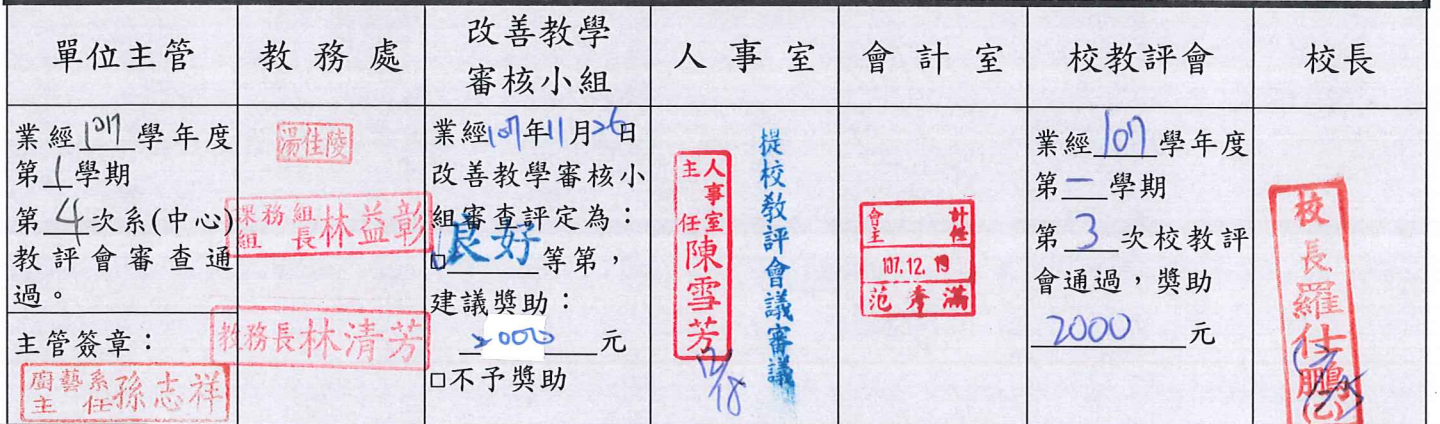 單位主管
教務處
改善教學
審核小組
人事室
會計室
校教評會
校長
業經107學年度
第1學期
第4次系(中心)
教評會審查通
過。
主管簽章：
廚藝系
主任孫志祥
湯佳陵
課務組
組長林益彰
教務長林清芳
業經107年11月26日
改善教學審核小
組審查評定為：
□良好等第，
建議獎助：
2000元
□不予獎助
人事室
主任
陳雪芳
12/18
提校教評會議審議
會計
主任
107.12.19
范秀滿
業經107學年度
第一學期
第3次校教評
會通過，獎助
2000元
校長羅仕鵬
(乙)